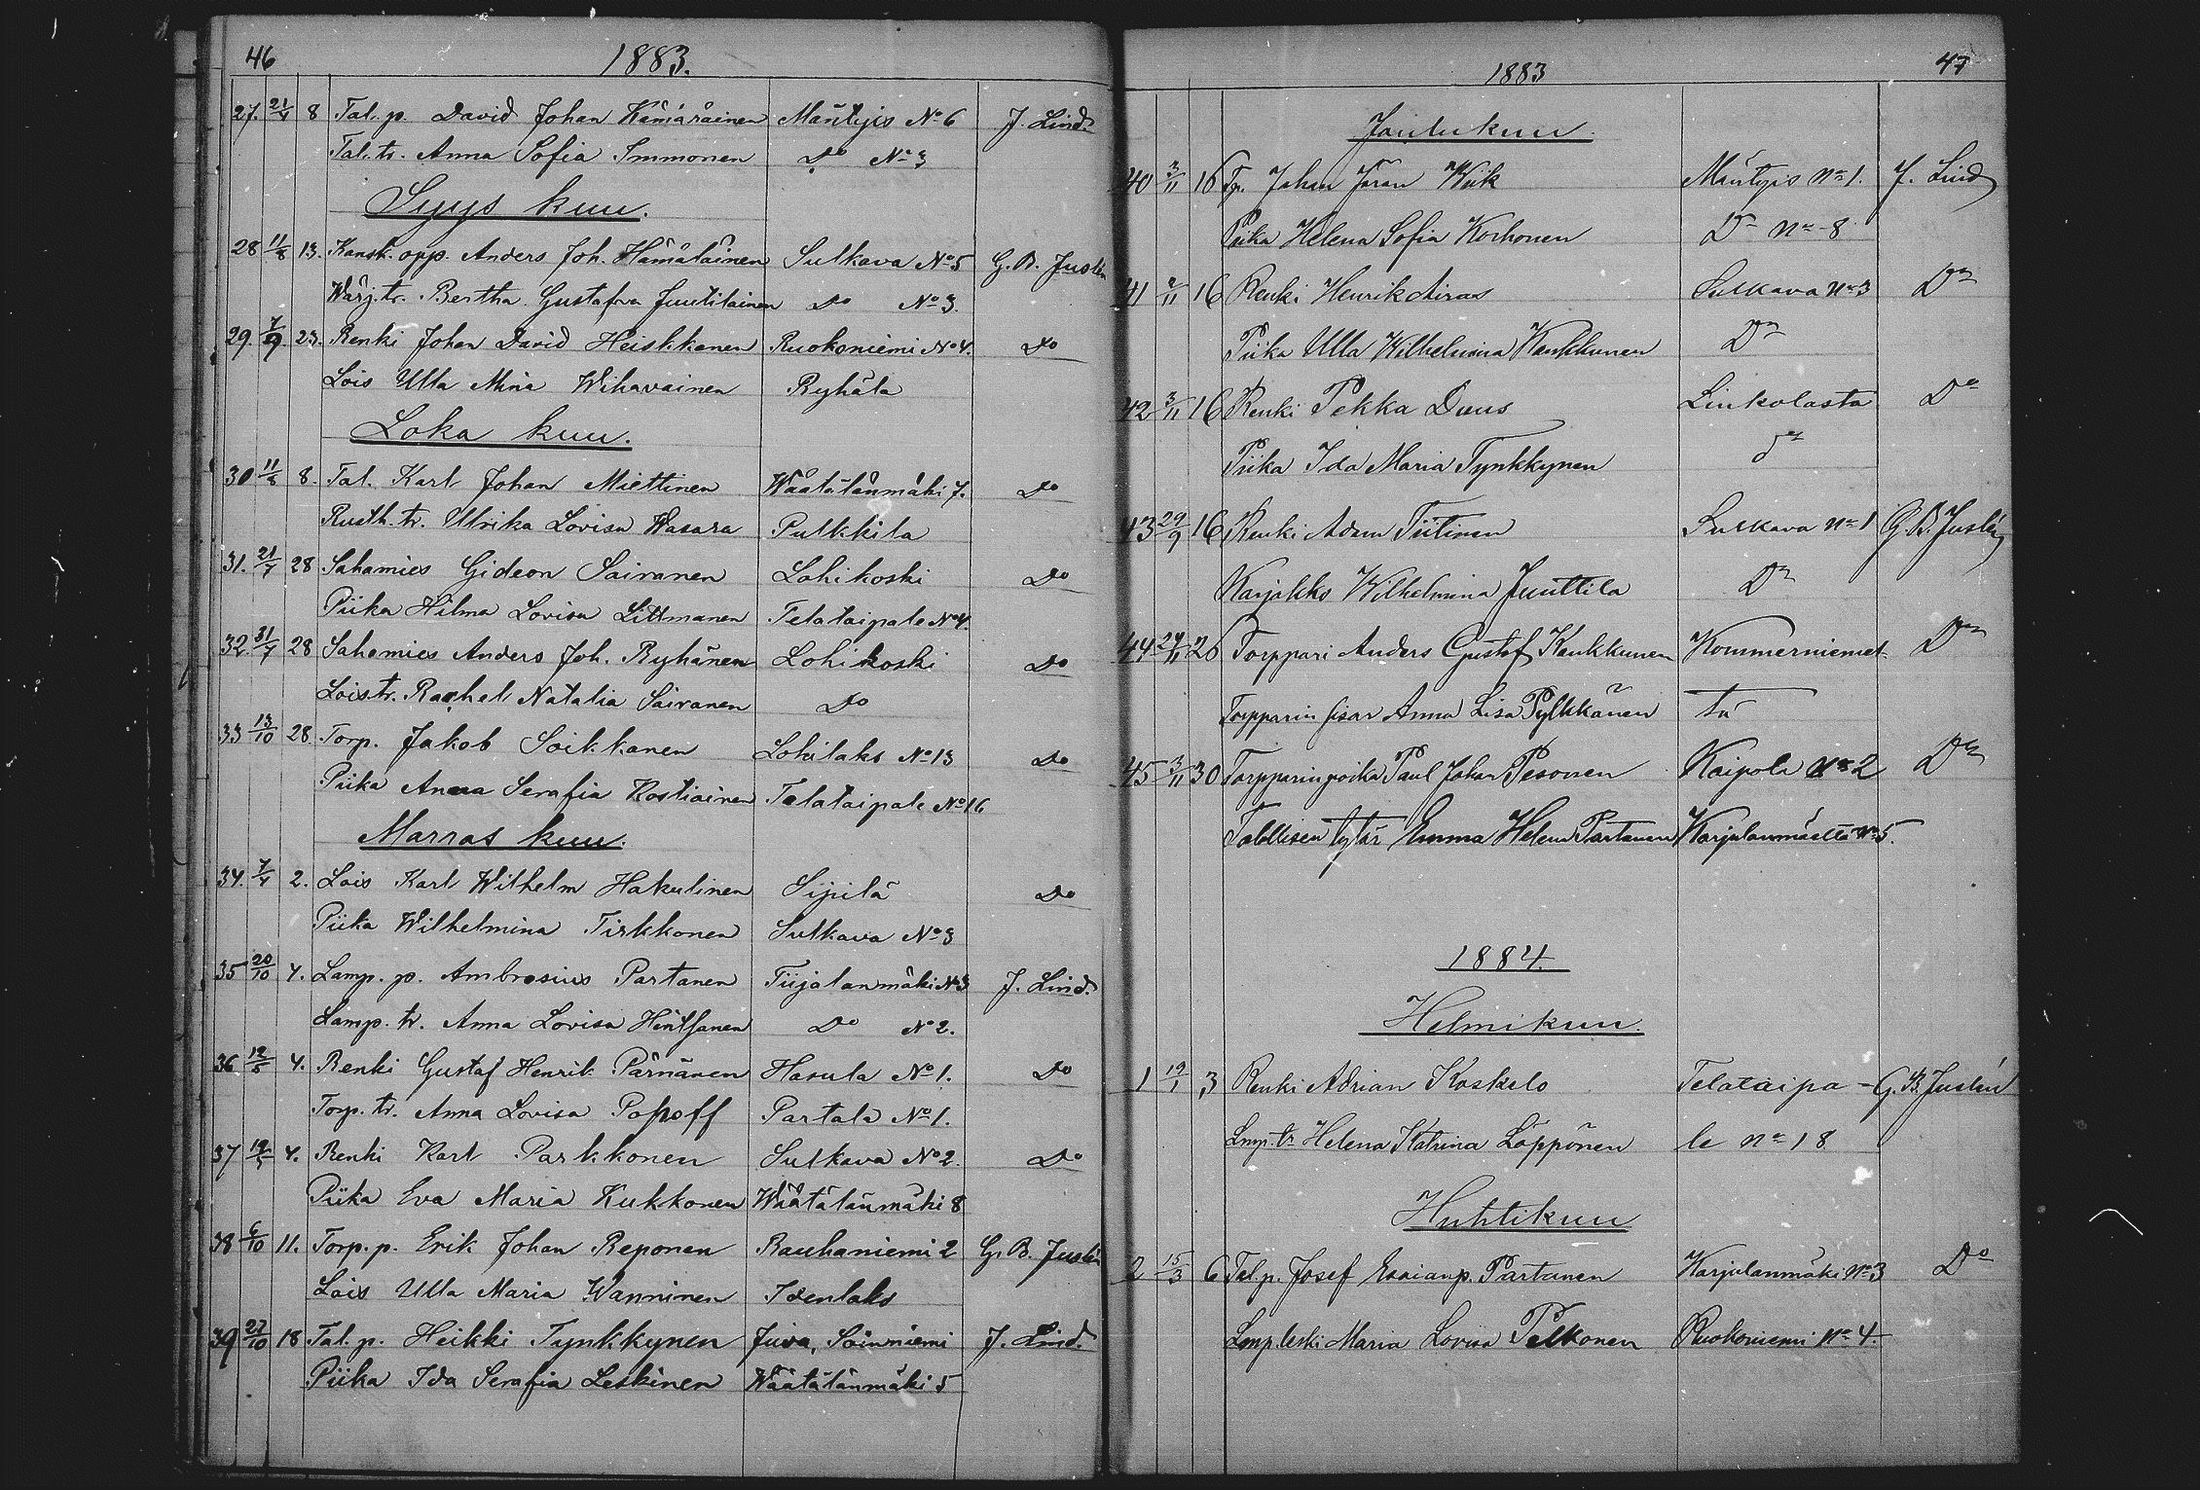 46 1883.
27. 21/4 8 Tal. p. David Johan Kämäräinen Mäntyis No 6 J. Lind.
Tal. tr. Anna Sofia Immonen Do No 3
Syys kuu.
28 11/8 13. Kansk. opp. Anders Joh. Hämäläinen Sulkava No 5 G. B. Juslén
Wärj. tr. Bertha Gustafva Juutilainen Do No 3.
29. 7/9 23. Renki Johan David Heiskkanen Ruokoniemi No 4. Do
Lois Ulla Mina Wihavainen Ryhälä
Loka kuu.
30 11/8 8. Tal. Karl Johan Miettinen Wäätälänmäki 7. Do
Rusth. tr. Ulrika Lovisa Wasara Pulkkila
31. 21/7 28 Sahamies Gideon Sairanen Lohikoski Do
Piika Hilma Lovisa Littmanen Telataipale No 4.
32 31/7 28 Sahamies Anders Joh. Ryhänen Lohikoski Do
Lois tr. Rachel Natalia Sairanen Do
33 13/10 28. Torp. Jakob Soikkanen Lohilaks No 13 Do
Piika Anna Serafia Kostiainen Telataipale No 16
Marras kuu.
34. 7/4 2. Lois Karl Wilhelm Hakulinen Sipilä Do
Piika Wilhelmina Tirkkonen Sulkava No 3
35 20/10 4. Lamp. p. Ambrosius Partanen Tiijalanmäki No 3 J. Lind.
Lamp. tr. Anna Lovisa Hintsanen Do No 2.
36 12/5 4. Renki Gustaf Henrik Pärnänen Hasula No 1. Do
Torp. tr. Anna Lovisa Popoff Partala No 1.
37 4. Renki Karl Parkkonen Sulkava No 2. Do
Piika Eva Maria Kukkonen Wäätälänmäki 8
38 6/10 11. Torp. p. Erik Johan Reponen Rauhaniemi 2 G. B. Juslén
Lois Ulla Maria Wanninen Idenlaks
39 27/10 18 Tal. p. Heikki Tynkkynen Juva, Soinniemi J. Lind.
Piika Ida Serafia Leskinen Wäätälänmäki 5
1883 47
Joulukuu
40 3/11 16 Tp. Johan Jöran Wiik Mäntyis No 1. J. Lind
Piika Helena Sofia Korhonen Do No 8
41 16 Renki Henrik Airas Sulkava No 3 Do
Piika Ulla Wilhelmina Kaukkunen Do
42 3/11 16 Renki Pekka Duus Linkolasta Do
Piika Ida Maria Tynkkynen do
43 29/9 16 Renki Adam Tiitinen Sulkava No 1 G. B. Juslén
Karjakko Wilhelmina Juuttila Do
44 24/11 26 Torppari Anders Gustaf Kaukkunen Kommerniemel- Do
Torpparin sisar Anna Lisa Pylkkänen tä
45 3/11 30 Torpparin poika Paul Johan Pesonen Kaipola No 2 Do
Talollisen tytär Emma Helena Partanen Karjulanmäeltä No 5.
1884.
Helmikuu.
1 19/1 3 Renki Adrian Koskelo Telataipa- G. B. Juslén
Lmp. tr Helena Katrina Löppönen le No 18
Huhtikuu
2 15/3 6 Tal p. Josef Esaianp. Partanen Karjulanmäki No 3 Do
Lmp. leski Maria Lovisa Pelkonen Ruokoniemi No 4.